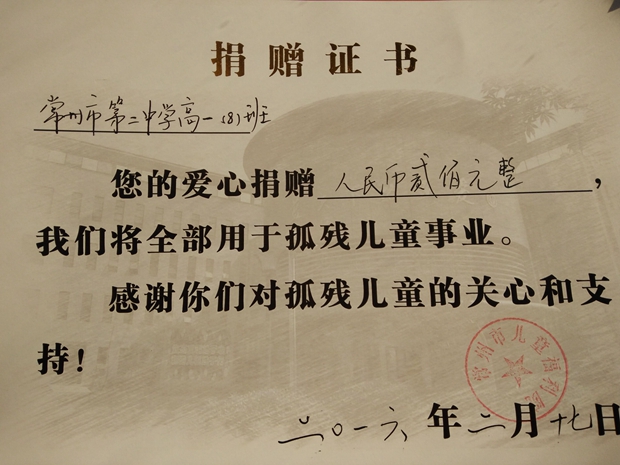 捐赠证书
常州市第二中学高一(8)班
您的爱心捐赠 人民币贰佰元整，
我们将全部用于孤残儿童事业。
感谢你们对孤残儿童的关心和支
持！
常州市儿童福利院
二〇一六年二月十七日